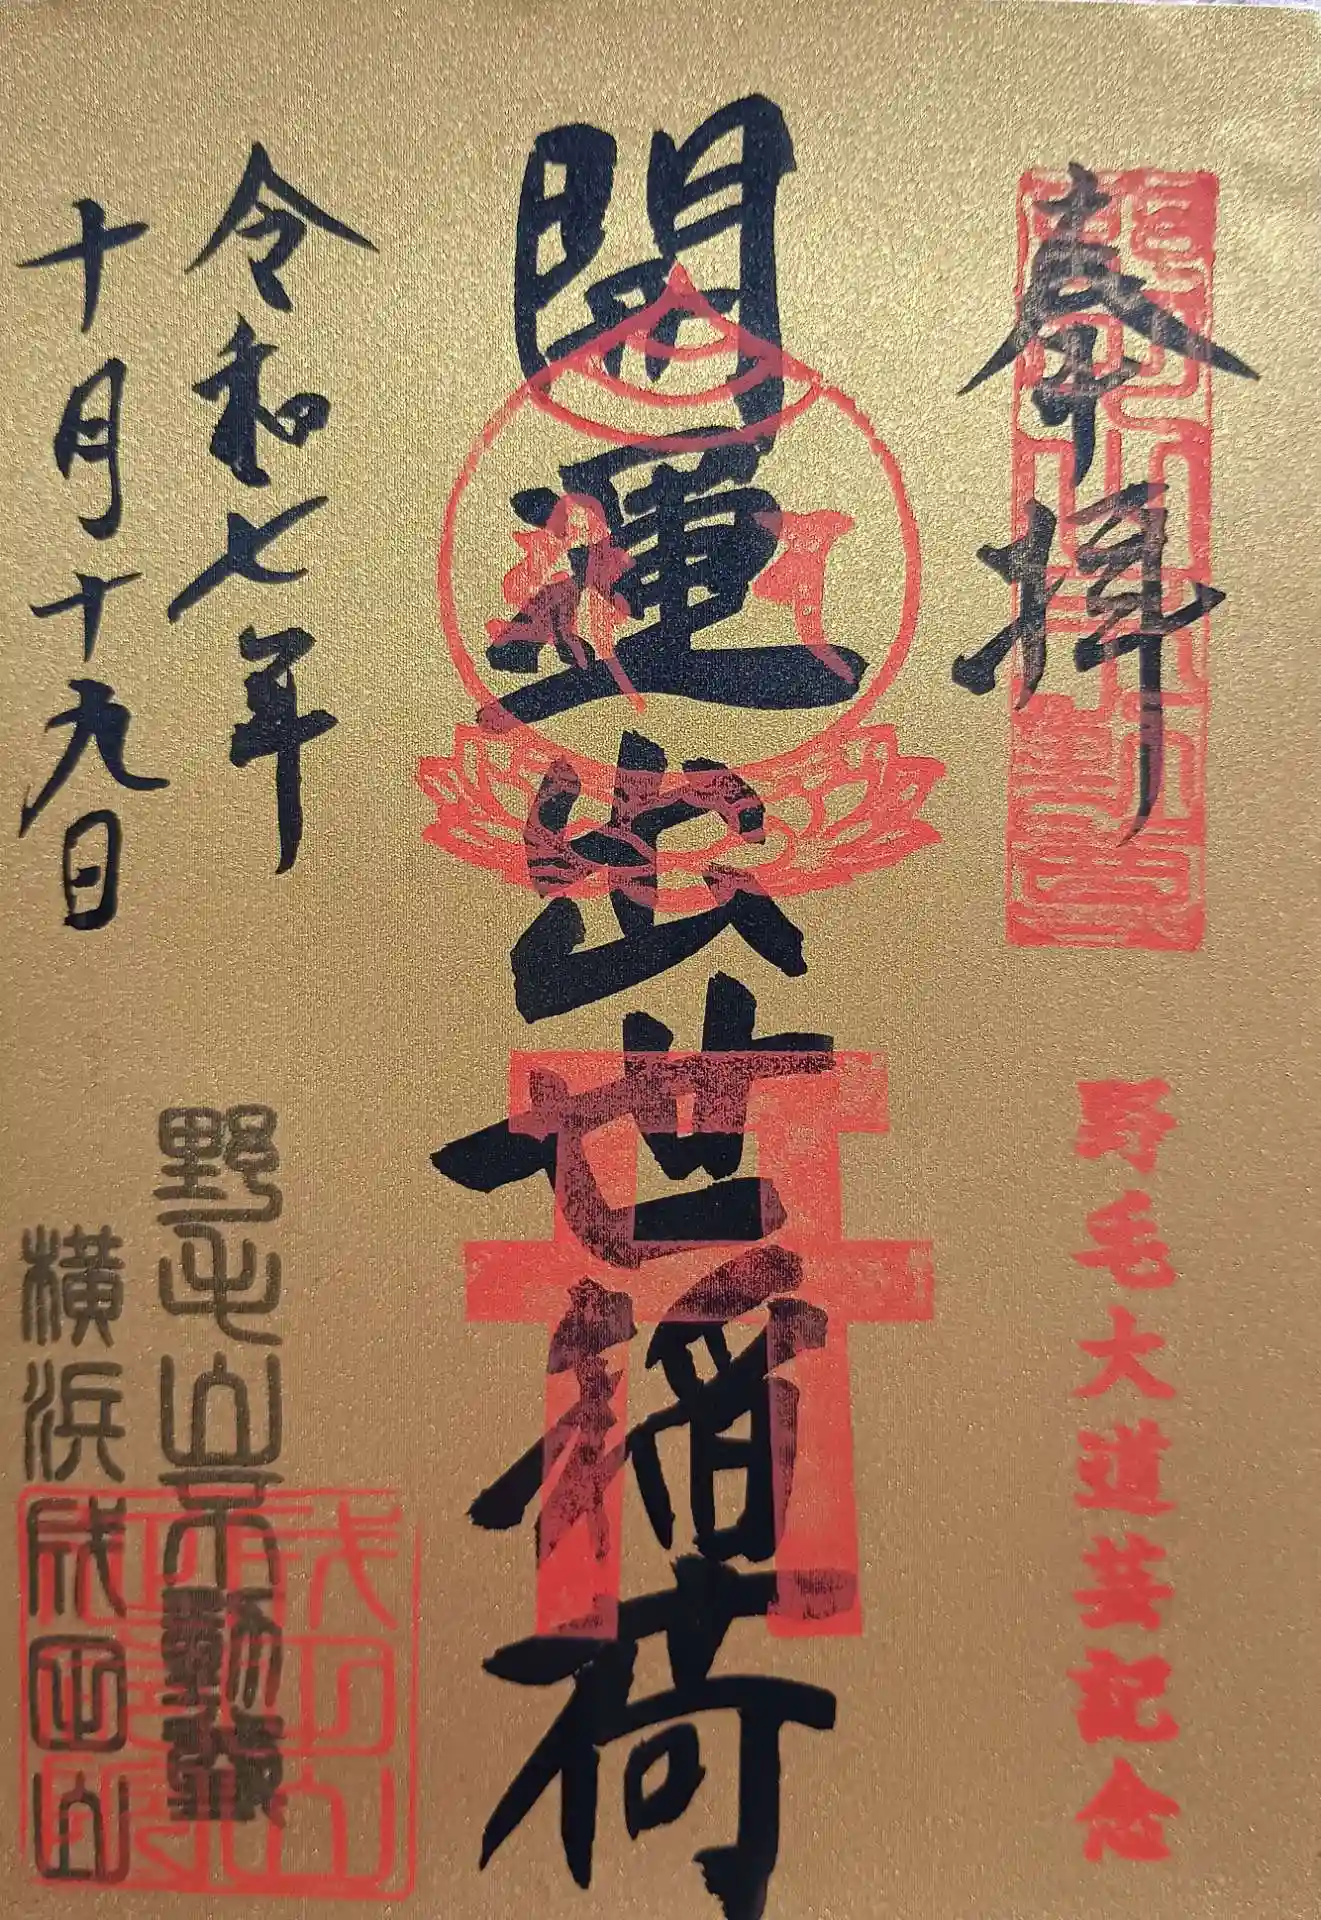 奉拝
野毛大道芸記念
開運出世稲荷
令和七年
十月十九日
野毛山不動尊
横浜成田山